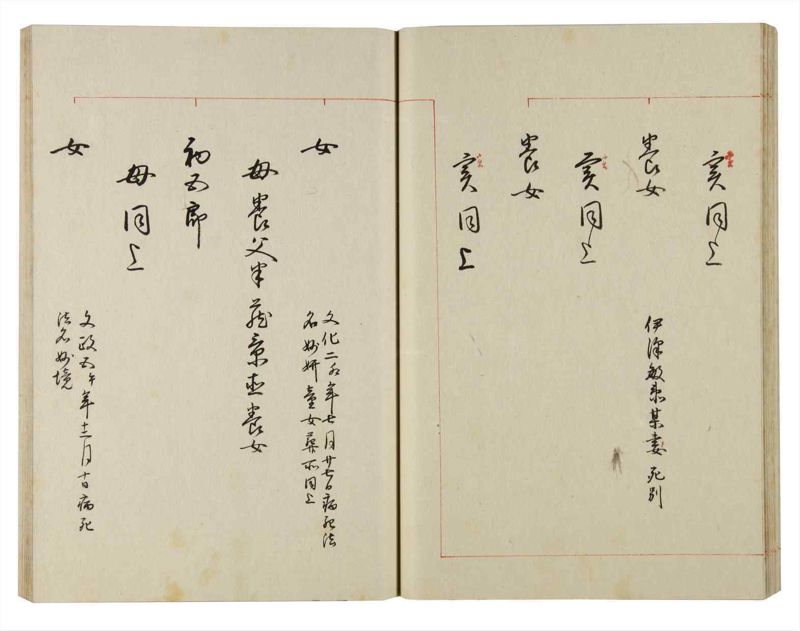 実同上
養女
伊澤敏某妻 死別
実同上
養女
実同上
女
文化二丑年七月廿七日病死法
名妙妍童女葬所同上
母養父半蔵景直養女
初五郎
母同上
女
文政五午年十二月十日病死
法名妙境